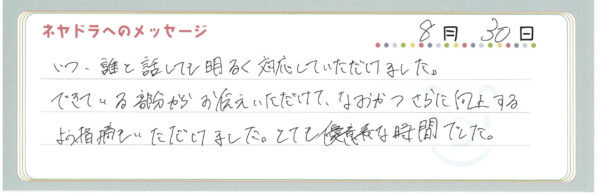 ネヤドラへのメッセージ
8月 30日
いつ、誰と話しても明るく対応していただけました。
できている部分からお伝えいただけて、なおかつさらに向上する
よう指摘をいただけました。とても優意義な時間でした。